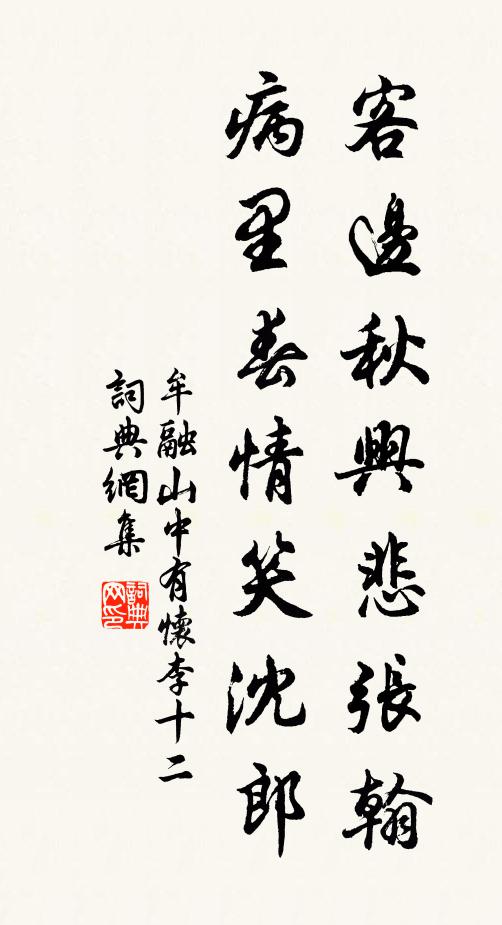 客邊秋興悲張翰
病里春情笑沈郎
牟融山中有懷李十二
詞典網集
詞典網印